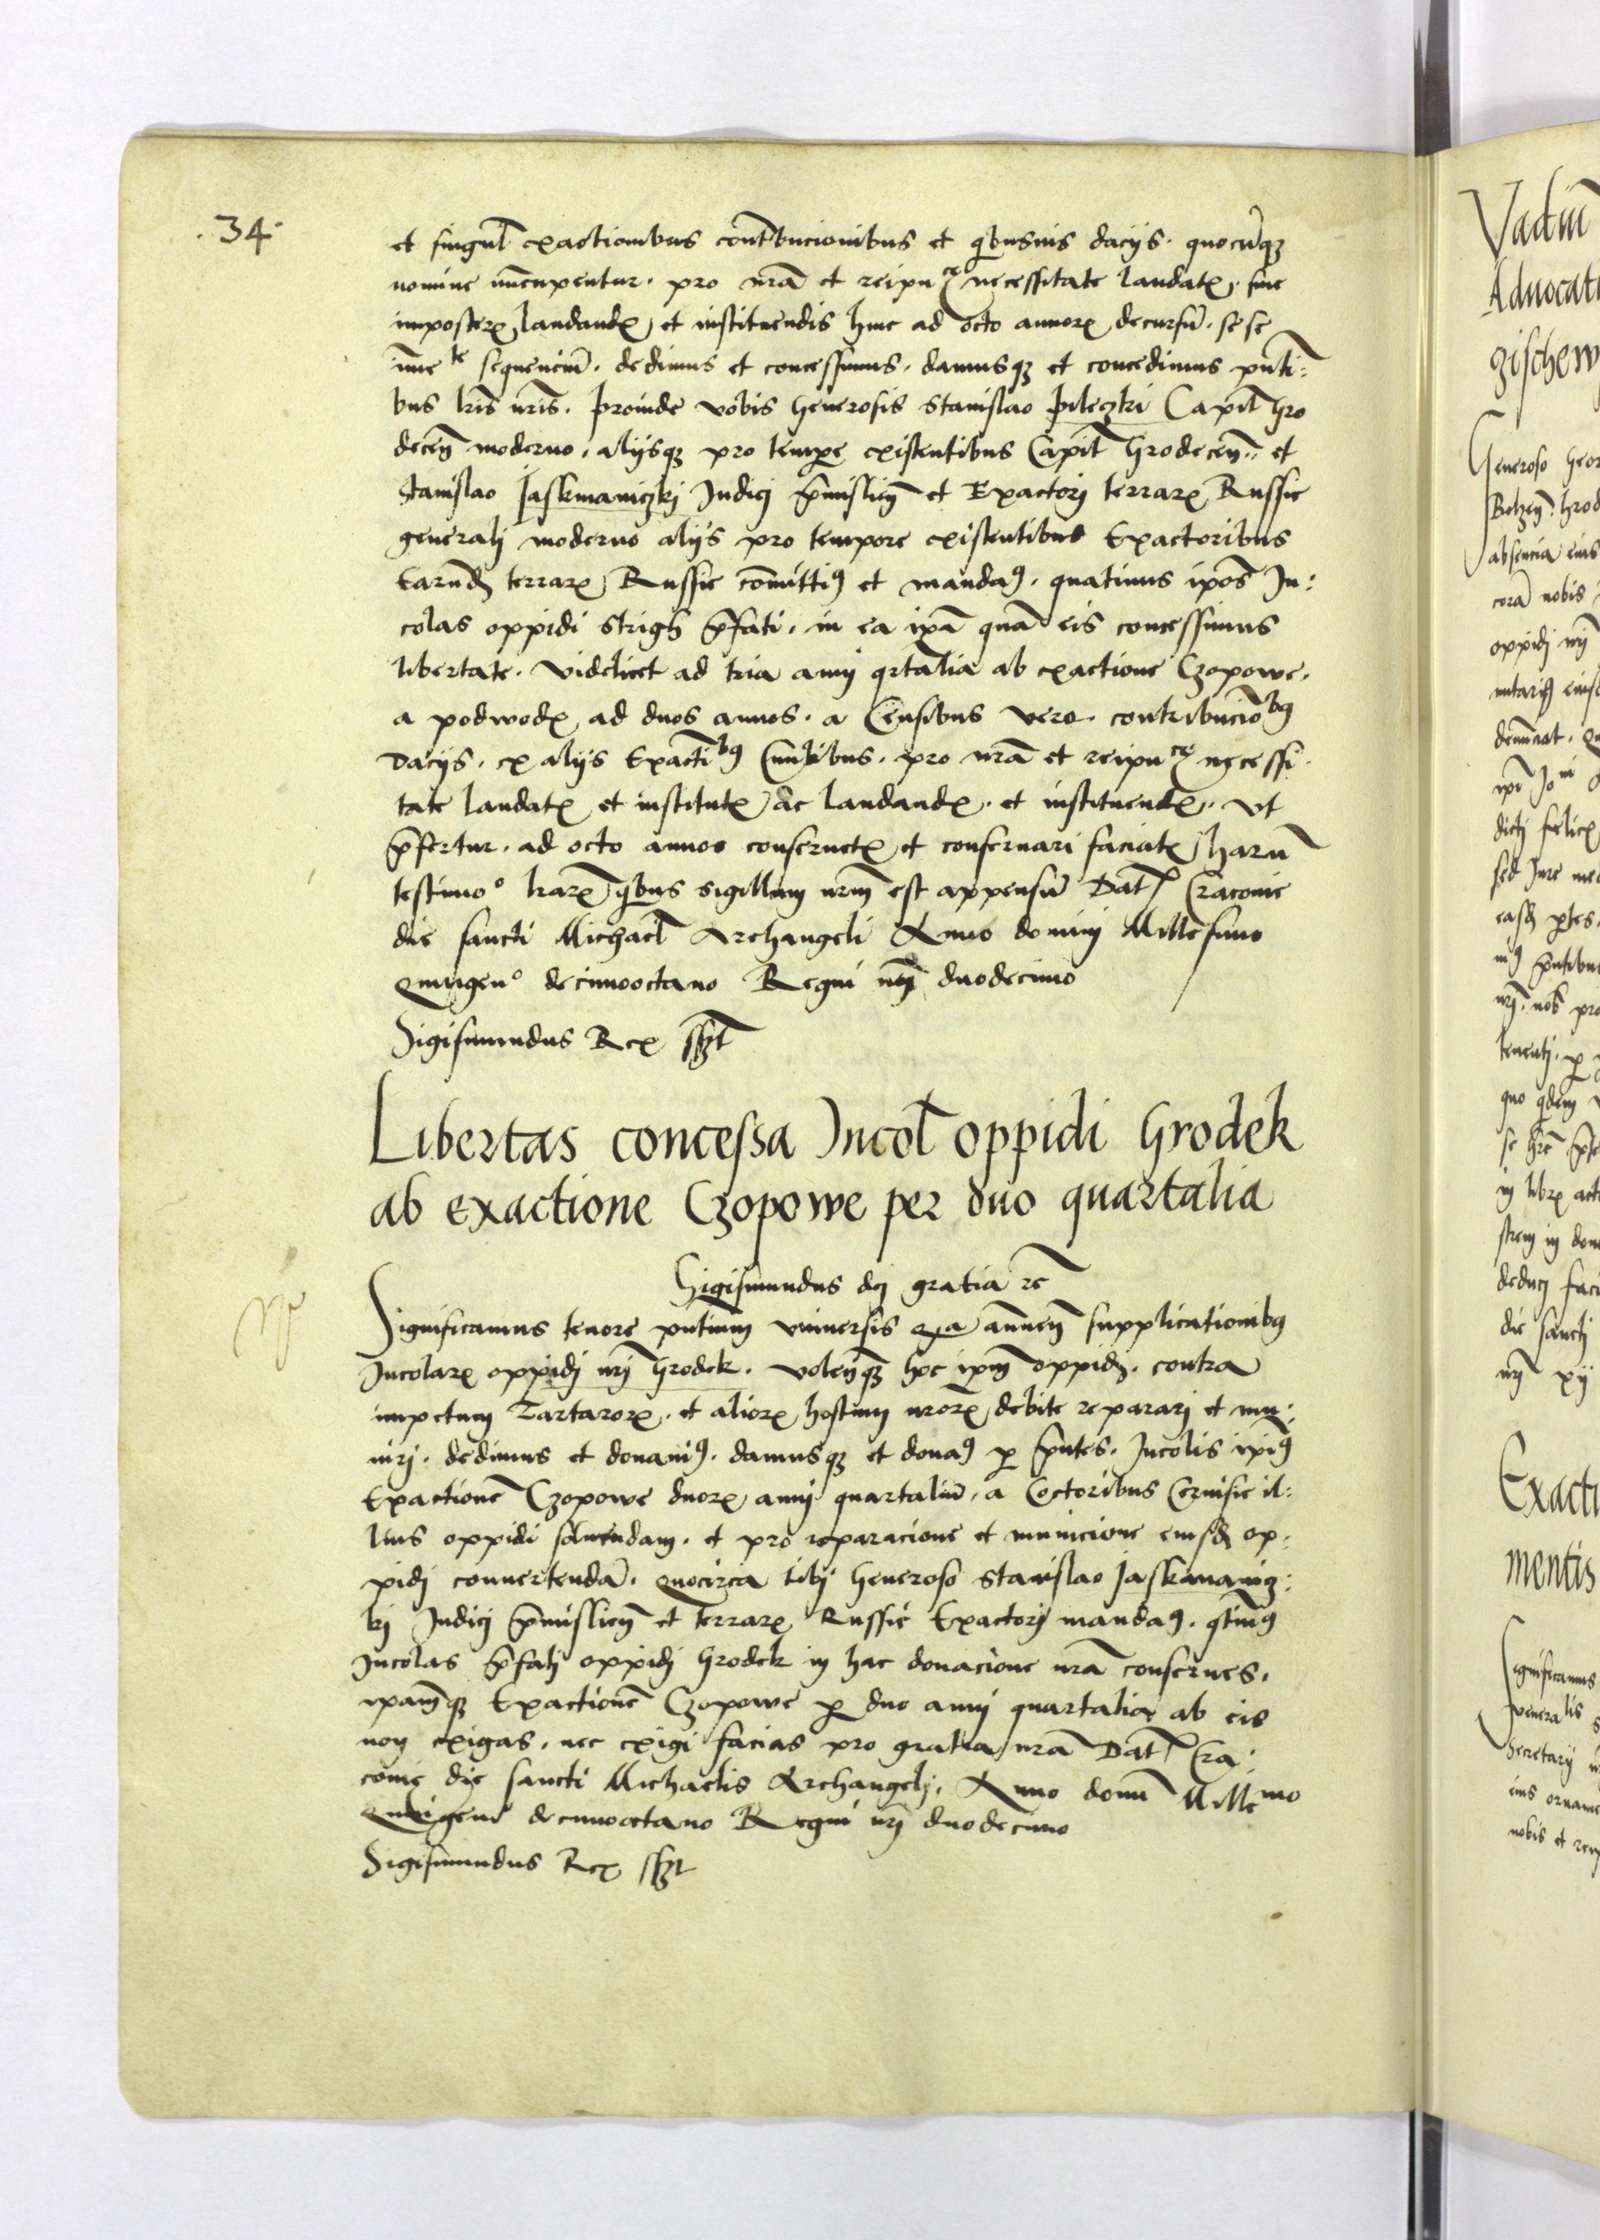 .34.
et singul exactionibus contribucionibus et qbusuis dacijs. quocūqȝ
nomine nūcupentur. pro nrā et reipuce necessitate laudatꝫ. siue
imposterꝫ laudandꝫ et instituendis hinc ad octo annorꝫ decursū. se se
imēte sequenciū. dedimus et concessimus. damusqȝ et concedimus pnti:
bus lris nris. proinde vobis Generosis Stanislao pileczki Capit Gro
decen moderno, alijsqȝ pro tempe existentibus Capit Grodecen. et
Stanislao Jaskmaniczkj Judicj pmislien et Exactorj terrarꝫ Russie
generalj moderno alijs pro tempore existentibus Exactoribus
Earundē terrarꝫ Russie comittimꝰ et mandamꝰ. quatinus ipos In:
colas oppidi Strigh pfati. in ea ipā quā eis concessimus
libertate. Videlicet ad tria anni qrtalia ab exactione Czopowe.
a podwodꝫ ad duos annos. a Censibus vero. contribuciōbꝰ
Dacijs. ex alijs Exactibꝰ Cunctibus. pro nrā et reipuce necessi
tate laudatꝫ et institutꝫ ac laudandꝫ. et instituendꝫ. vt
pfertur. ad octo annos conseruetꝫ et conseruari faciatꝫ harū
testimoº lrarꝫ qbus sigillum nrm est appensū Dat Cracouie
die sancti Michael Archangeli Anno dominj Millesimo
Quingenº decimooctauo Regni nrj duodecimo
Sigismundus Rex sszt
Libertas concessa Incol oppidi Grodek
ab exactione Czopowe per duo quartalia
Sigismundus dej gratia rc
Significamus tenore pntium vniuersis Qia annuen supplicationibꝰ
Incolarꝫ oppidj nrj Grodek. volenqȝ hoc ipm oppidū. contra
impetum Tartarorꝫ. et aliorꝫ hostium nrorꝫ debite repararj et mu:
nirj. dedimus et donauimꝰ. damusqȝ et donamꝰ p pntes. Incolis ipiꝰ
Exactionē Czopowe duorꝫ annj quartaliū, a Coctoribus Ceruisie il:
lius oppidi soluendam. et pro reparacione et municione eiusdē op.
pidj conuertendā. Quocirca tibj Generoso Stanislao Jaskmanicz:
kj Judicj pmislien et terrarꝫ Russie Exactorj mandamꝰ. qtinꝰ
Incolas pfatj oppidj Grodek in hac donacione nrā conserues,
ipamqȝ Exactionē Czopowe p duo annj quartalia ab eis
non exigas, nec exigi facias pro gratia nrā Dat Cra.
couie die sancti Michaelis Archangelj. Anno domi Millemo
Quingenº decimooctauo Regni nrj duodecimo
Sigismundus Rex sszt
Vadiū
Aduocati
Generoso Geor
absencia eius
corā nobis
oppidj nrj
Exacti
mentis
Significamus
Secretarij
eius orname